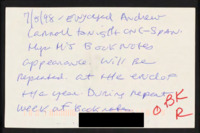 7/5/98 - Enjoyed Andrew
Carroll tonight ONE-SPAN.
Hyp M's BOOK NOTES
appearance will be
repeated. at the end of
the year During repeats
week at Booknotes.
O BK
R